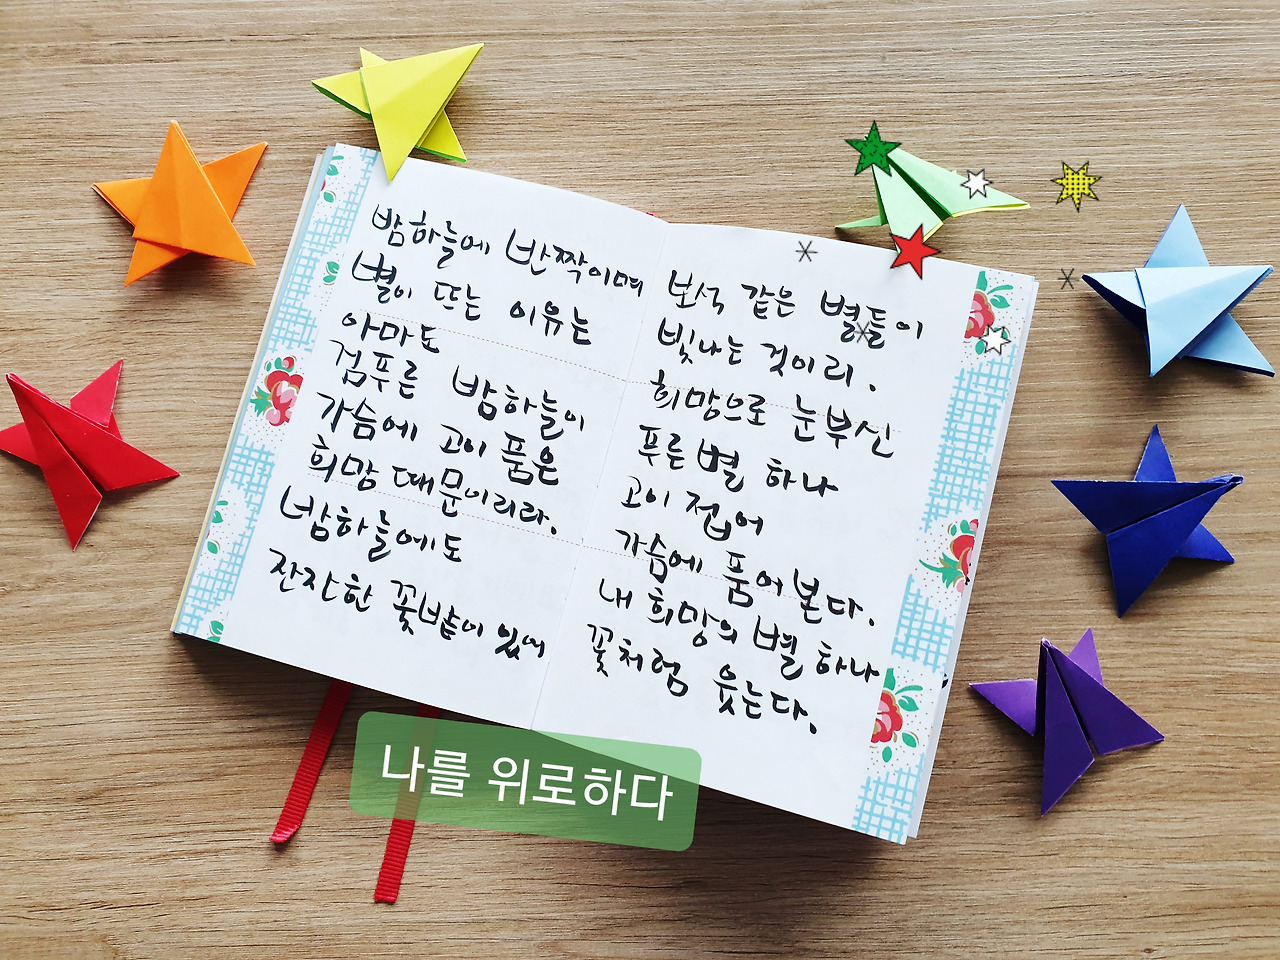 밤하늘에 반짝이며
별이 뜨는 이유는
아마도
검푸른 밤하늘이
가슴에 고이 품은
희망 때문이리라.
밤하늘에도
잔잔한 꽃밭이 있어
보석 같은 별들이
빛나는 것이리.
희망으로 눈부신
푸른 별 하나
고이 접어
가슴에 품어본다.
내 희망의 별 하나
꽃처럼 웃는다.
나를 위로하다